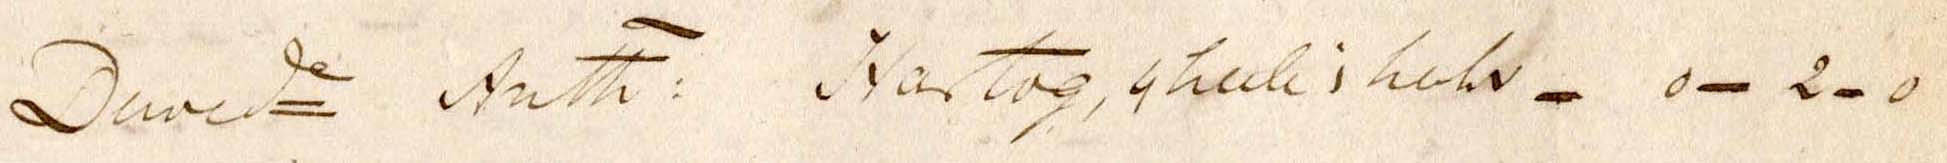 De wed:e Anth: Hartog, 4 heele's huts - 0 - 2 - 0